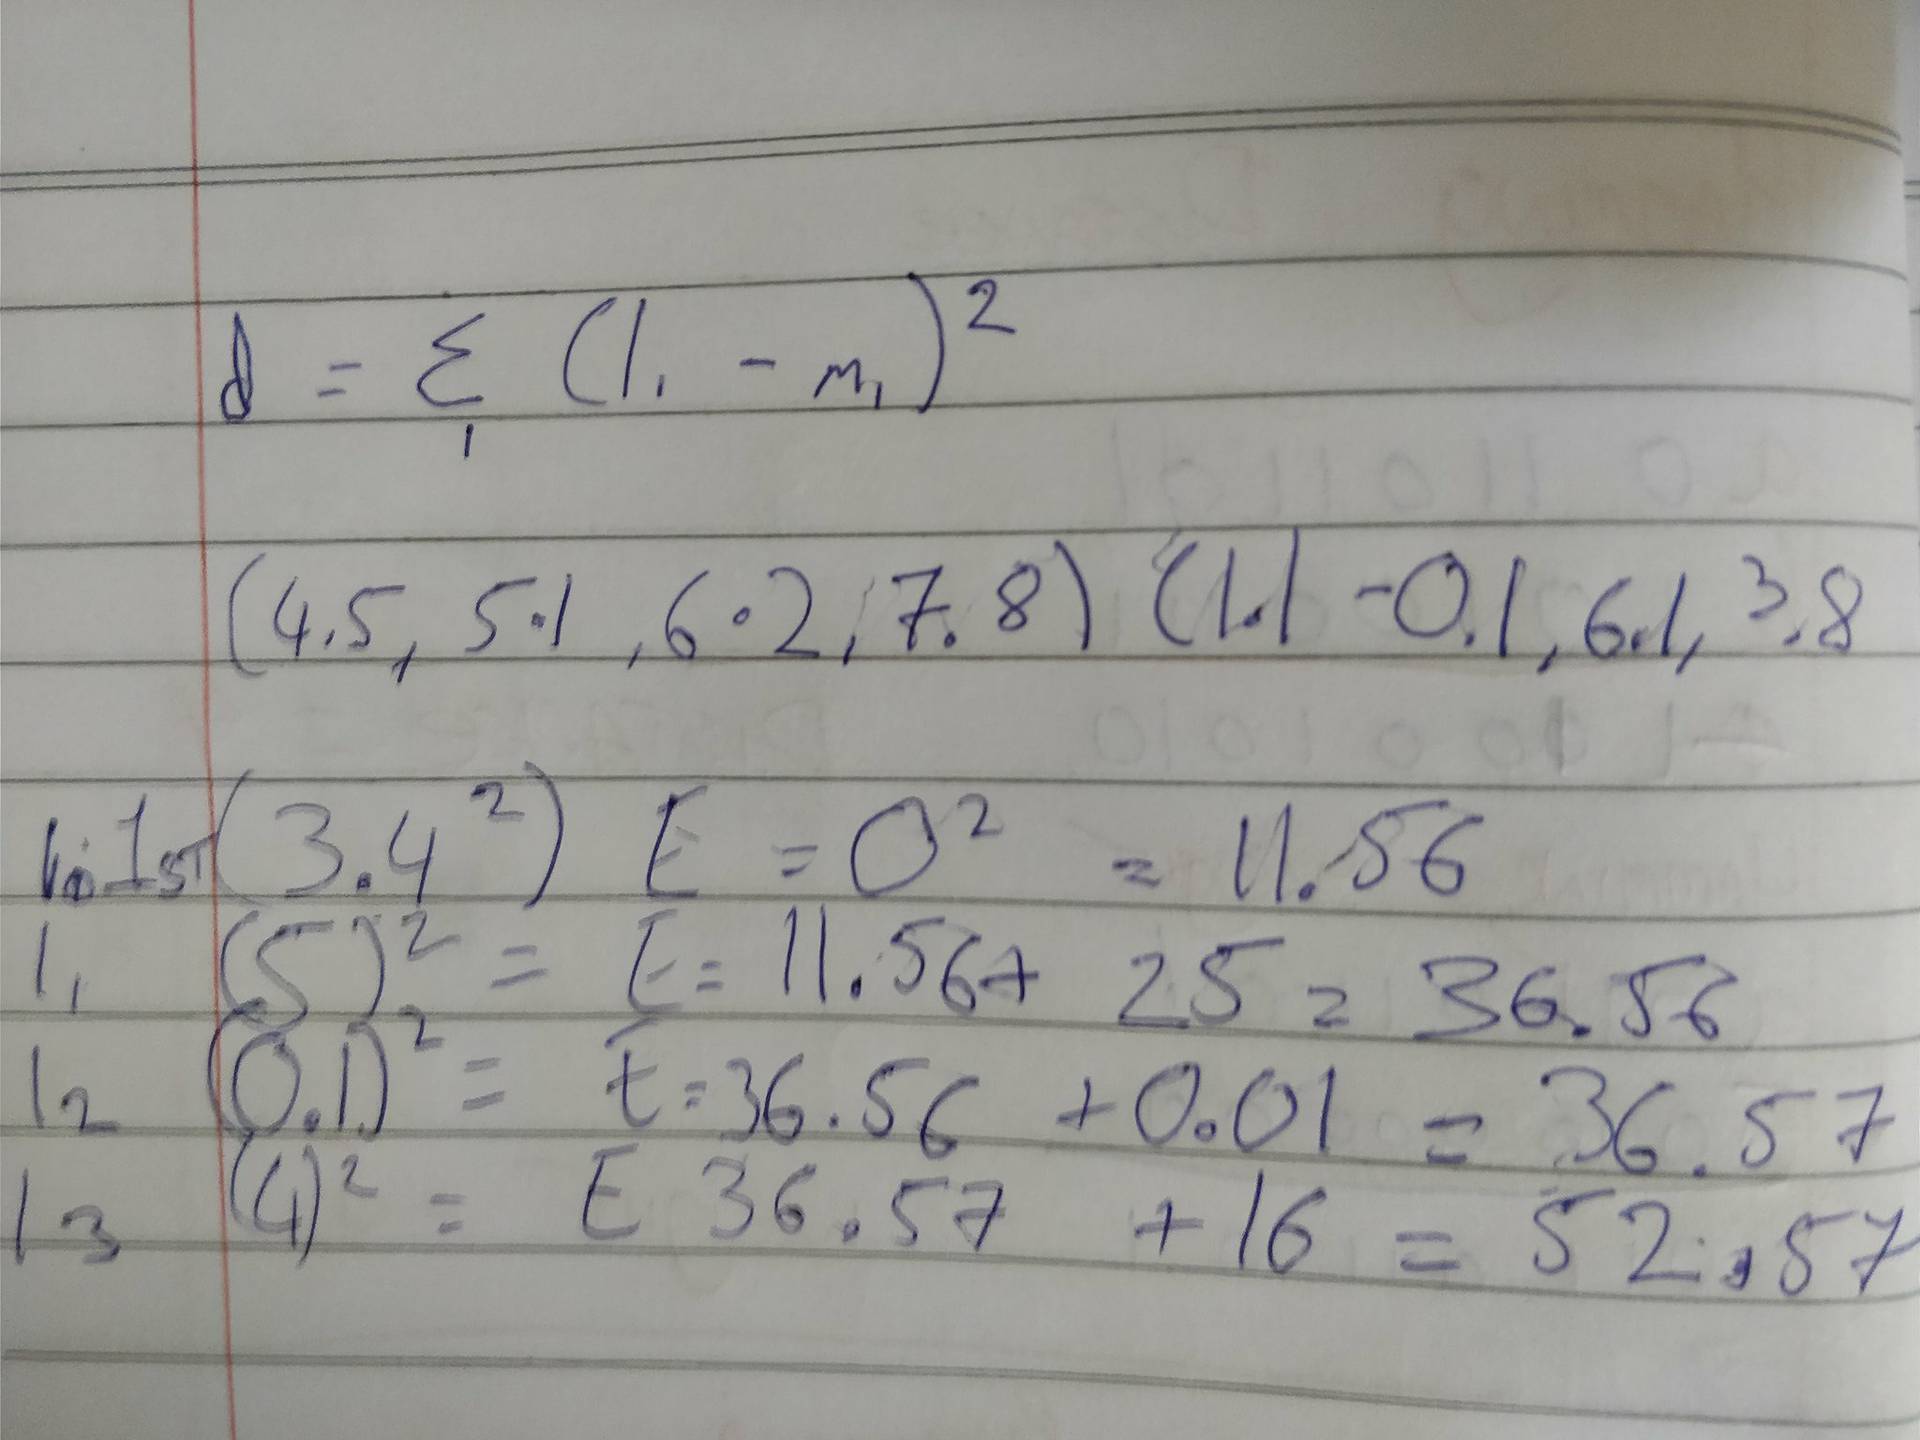 d = Σ (l₁ - m₁)²
1
(4.5, 5.1, 6.2, 7.8) (1.1 -0.1, 6.1, 3.8
1st (3.4²) E = 0² = 11.56
l₁ (5)² = E = 11.56+ 25 = 36.56
l₂ (0.1)² = E = 36.56 + 0.01 = 36.57
l₃ (4)² = E 36.57 + 16 = 52.57